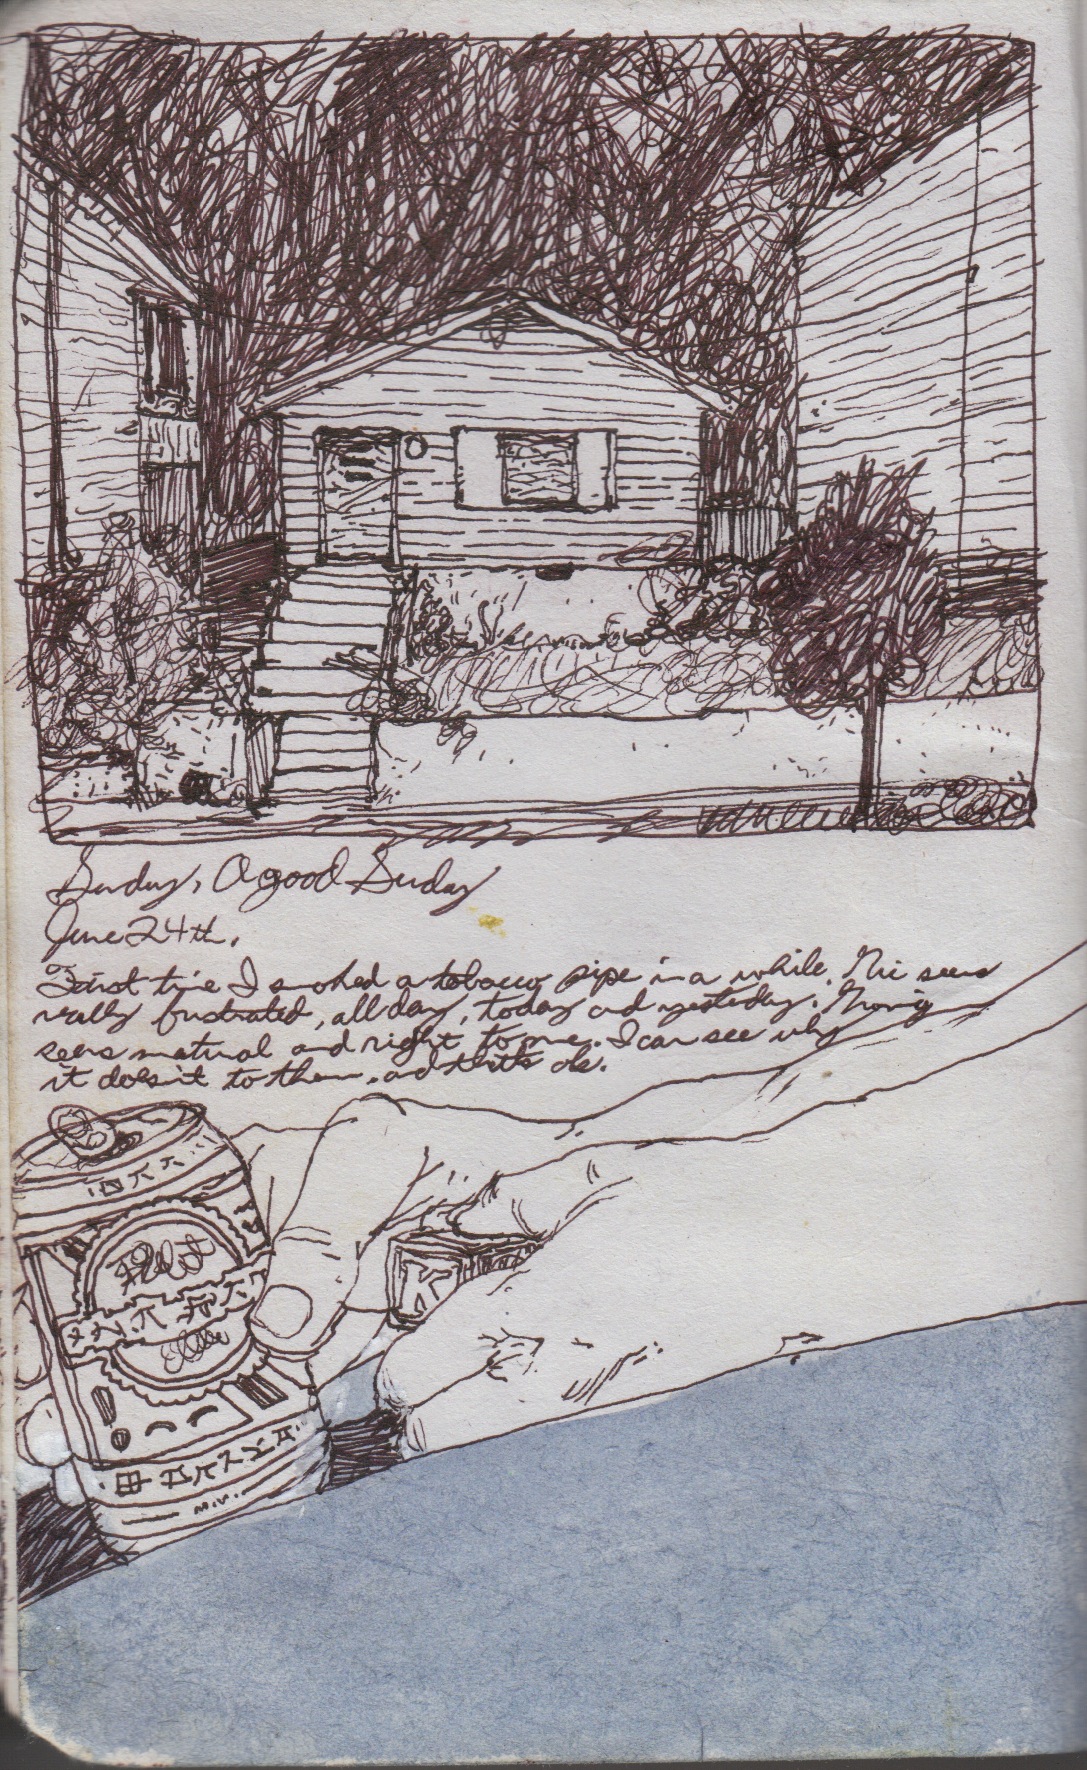 Sunday, A good Sunday
June 24th.
First time I smoked a tobacco pipe in a while. Nic seems
really frustrated, all day, today and yesterday. Moving
seems natural and right to me. I can see why
it doesn't to them, and that's ok.